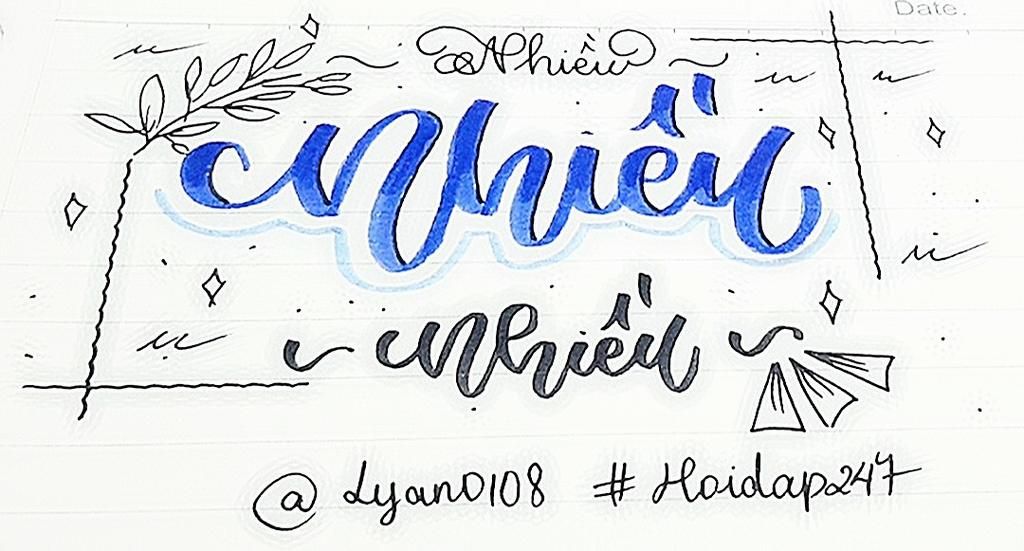 Date.
Nhiều
Nhiều
Nhiều
@Lyan0108 #Hoidap247